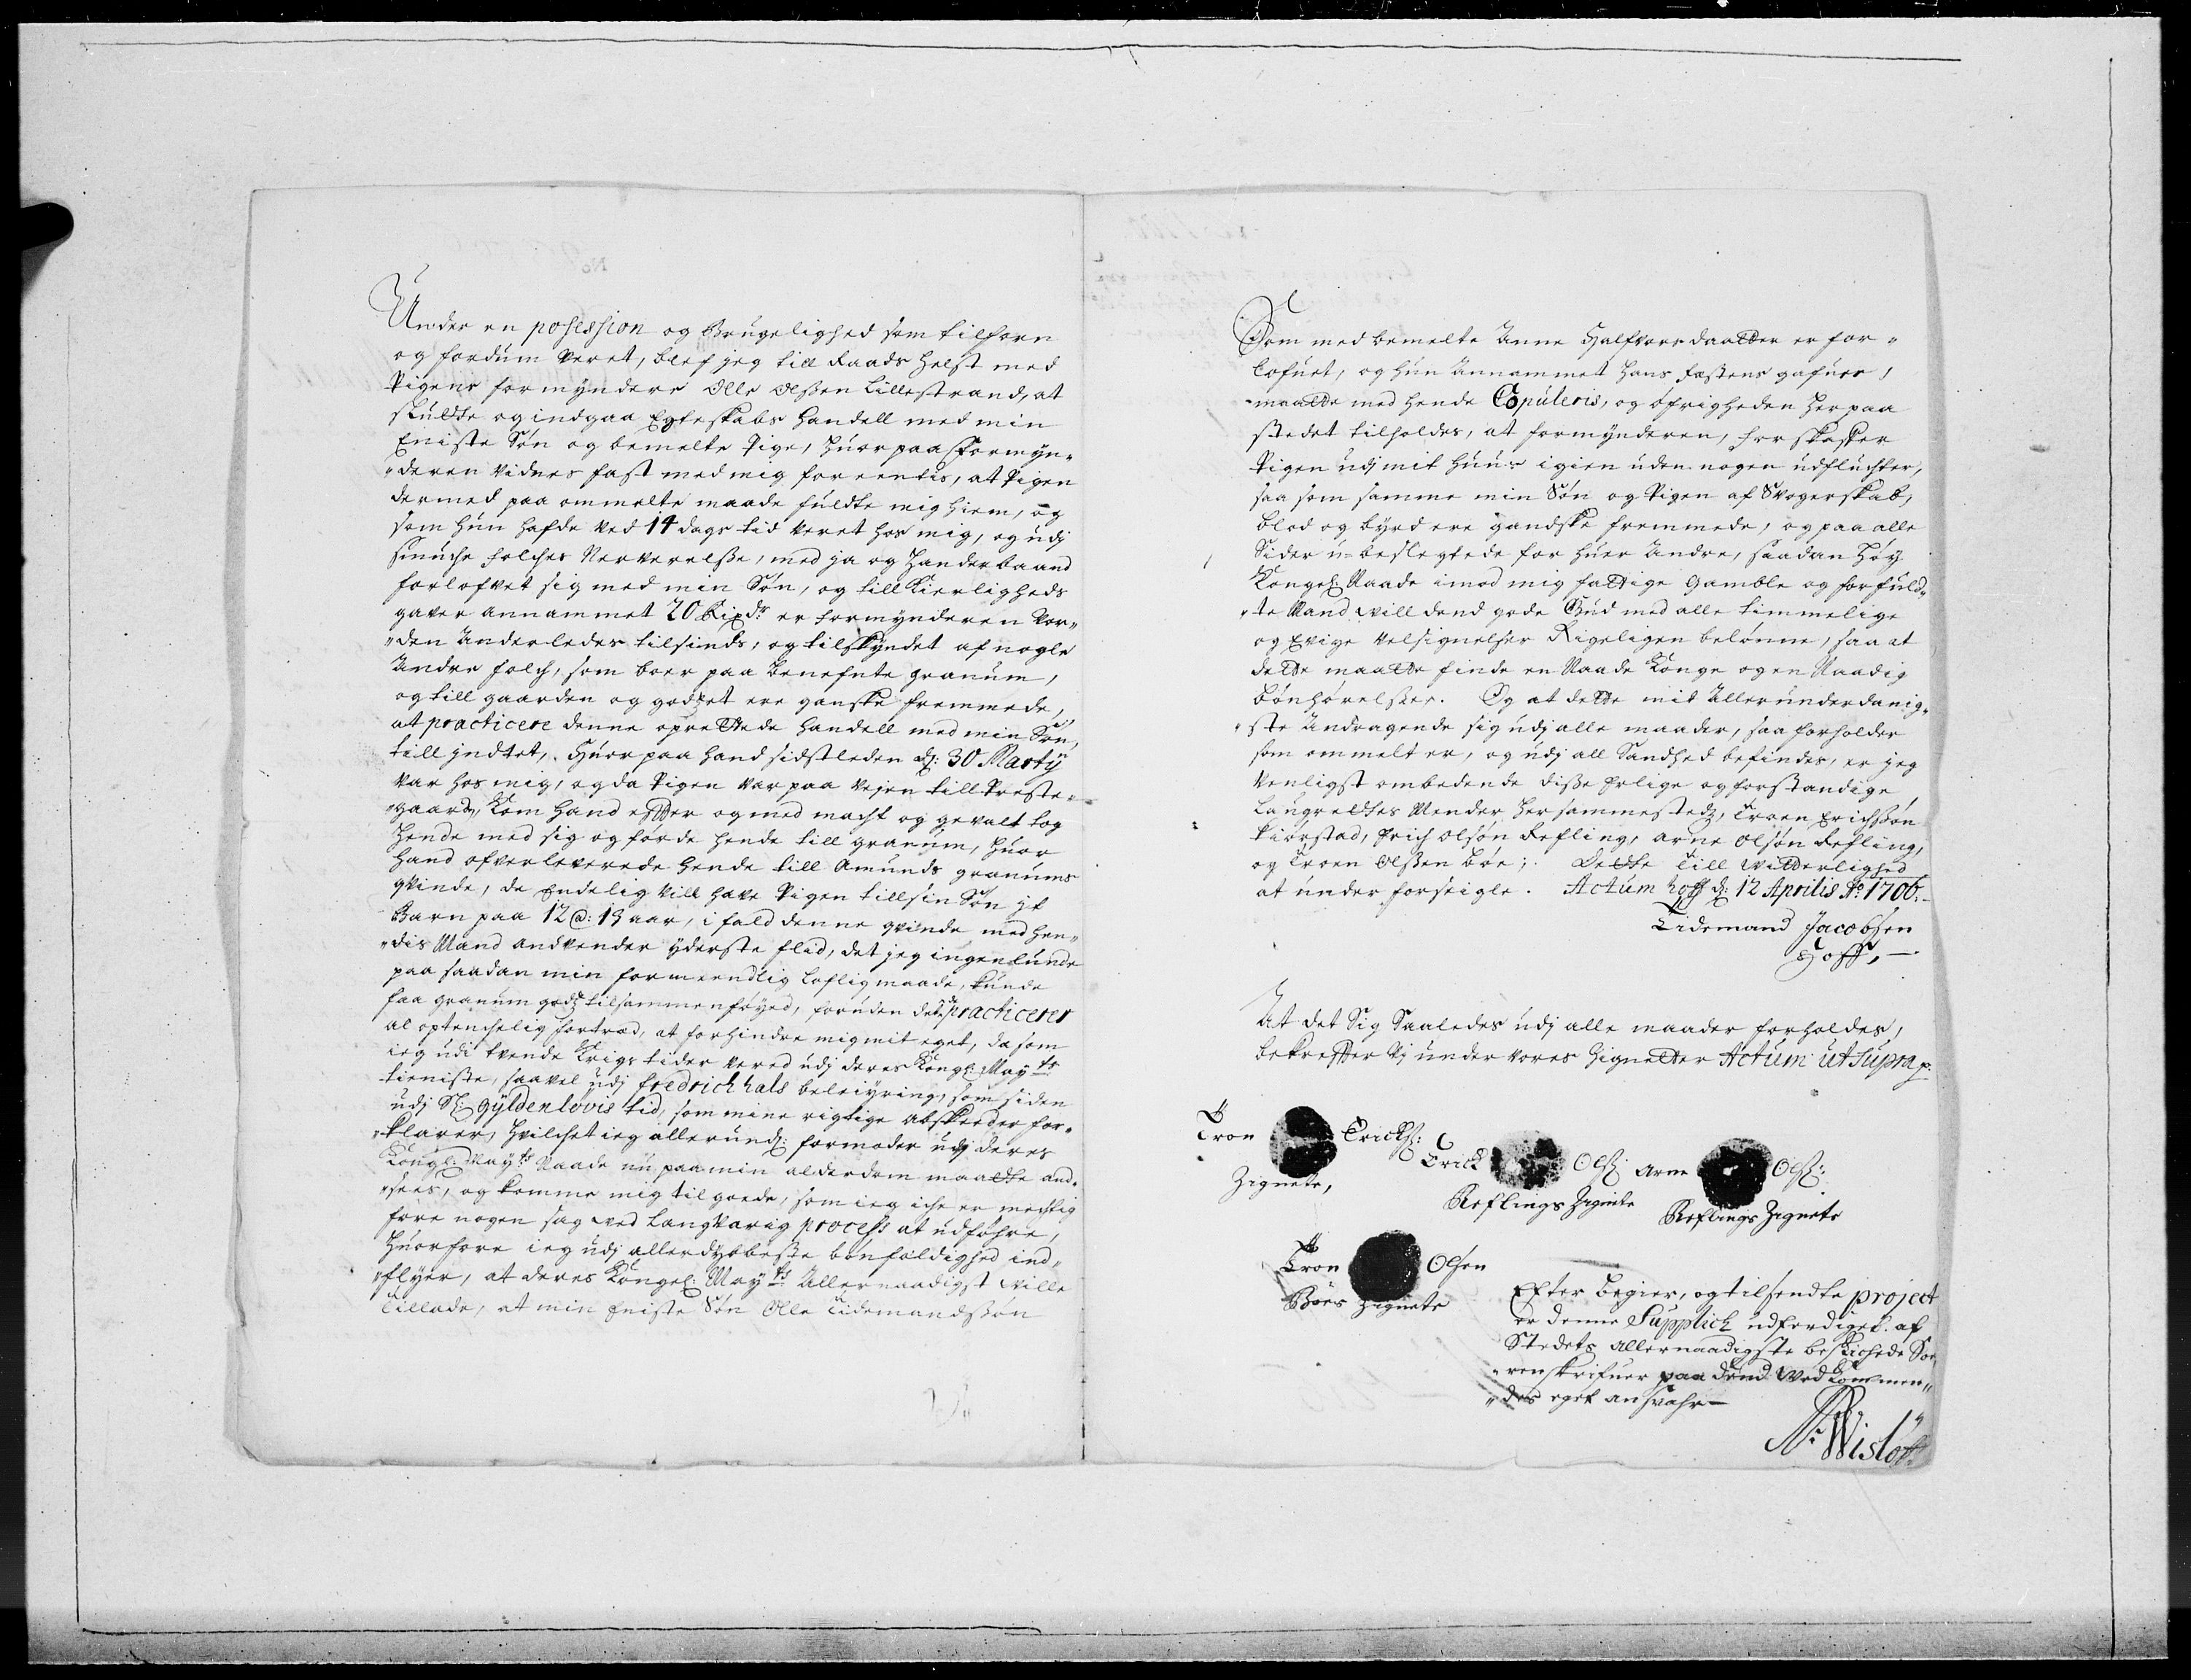 Under en posession og Brugelighed som tilforn
og fordum veret, blef jeg till Raads helst med
Pigens formyndere Olle Olßen Lillestrand, at
skulde og indgaa Egteskabs handell med min
Eniste Søn og bemelte Pige, huorpaa Formyn„
„deren vidnes fast med mig foreentis, at Pigen
dermed paa ommelte maade fuldte mig hiem, og
som hun hafde ved 14 dags tid veret hos mig, og udj
smuche folches Nerverelße, med ja og Hander baand
forlofvet sig med min Søn, og till Kierligheds
gaver annammet 20 Rixdr er formynderen vor„
„den Anderledes tilsinds, og tilskyndet af nogle
Andre folch, som boer paa benefnte granum,
og till gaarden og godzet ere ganske fremmede,
at practicere denne oprettede handell med min Søn,
till jndtet, Huorpaa hand sidstleden dj: 30 Marty
var hos mig, og da Pigen var paa Vejen till Preste„
„gaarden, kom hand efter og med macht og gevalt tog
hende med sig og førde hende till granum, huor
hand ofverleverede hende till Amunds granums
qvinde, de Endelig vill have Pigen till sin Søn it
Barn paa 12 @: 13 aar, i fald denne qvinde med hen„
„dis Mand andvender yderste flid, det jeg ingenlunde
paa saadan min formeendlig loflig maade, kunde
faa granum godz tilsammenføyed, foruden de practicerer
al optenchelig fortræd, at forhindre mig mit eget, da som
ieg udi tvende Krigs tider vered udj deres Kongl: Mayts
tieniste, saavel udj fredrichhals beleiyring, som siden
udj Sl: Gyldenløvis tid, som mine rigtige abskeeder for„
„klarer, hvilchet ieg allerund: formoder udj deres
Kongl: Mayts Naade nu paa min alderdom maatte and„
„sees, og komme mig til goede, som ieg iche er mechtig
fore nogen sag ved langvarig process at udføhre,
huorfore ieg udj allerdybbeste bønfaldighed ind„
„flyer, at deres Kongel: Mayts Allernaadigst ville
Tillade, at min Eniste Søn Olle Tidemandssøn
Som med bemelte Anne Halfvorsdaatter er for„
lofuet, og hun Annammet hans Festens gafuer,
maatte med hende Copuleris, og øfrigheden her paa
stedet tilholdes, at formynderen, her skaffer
Pigen udj mit huus igien uden nogen udfluchter,
saa som samme min Søn og Pigen af Svogerskab,
blod og byrd ere gandske fremmede, og paa alle
Sider u-beslegtede for huer Andre, saadan høy
Kongel: Naade imod mig fattige Gamble og forfuld„
„te Mand will dend gode Gud med alle timmelige
og Evige velsignelser Rigeligen belønne, saa at
dette maatte finde en Naade Konge og en Naadig
bønhørelßer. Og at dette mit Allerunderdanig„
„ste Andragende sig udj alle maader, saa forholder
som ommelt er, og udj all Sandhed befindes, er jeg
venligst ombedende diße Erlige og forstandige
Laugrettes Mender her sammestedz, Troen Erichßøn
kiørstad, Erich Olsøn Refling, Arne Olsøn Refling,
og Troen Olßen bøe; Dette Till vitterlighed
at underforseigle. Actum hoff dj: 12 Aprilis Ao: 1706.
Tidemand Jacobsen
Hoff,
At det Sig Saaledes udj alle maader forholdes,
bekrefter Vj under vores Signetter Actum ut Supra p.
Tron Ericks:
Zignete,
Erick Olß:
Reflings Zignete
Arne Olß:
Reflings Zignete
Tron Olsen
Böes Zignete
Efter begier, og tilsendte project
er denne Supplick udferdiget af
Stedets allernaadigste beskichede Soe„
„renskrifuer paa dend Wed Kommen„
„des eget ansvahr
N: Wisløff